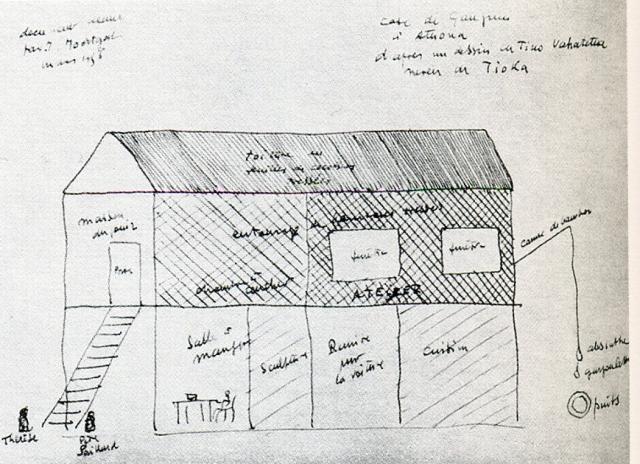 case de Gauguin
à Atuona
d'après un dessin de Tino Vahatetua
neveu de Tioka
toiture en
feuilles de cocotier
tressées
maison
du jouir
entourage de bambous tressés
fenêtre
fenêtre
canne de bambou
chambre à
coucher
ATELIER
Salle à
manger
Sculpture
Remise
pour
la voiture
Cuisine
absinthe
gargoulette
puits
Thérèse
Père
Paillard